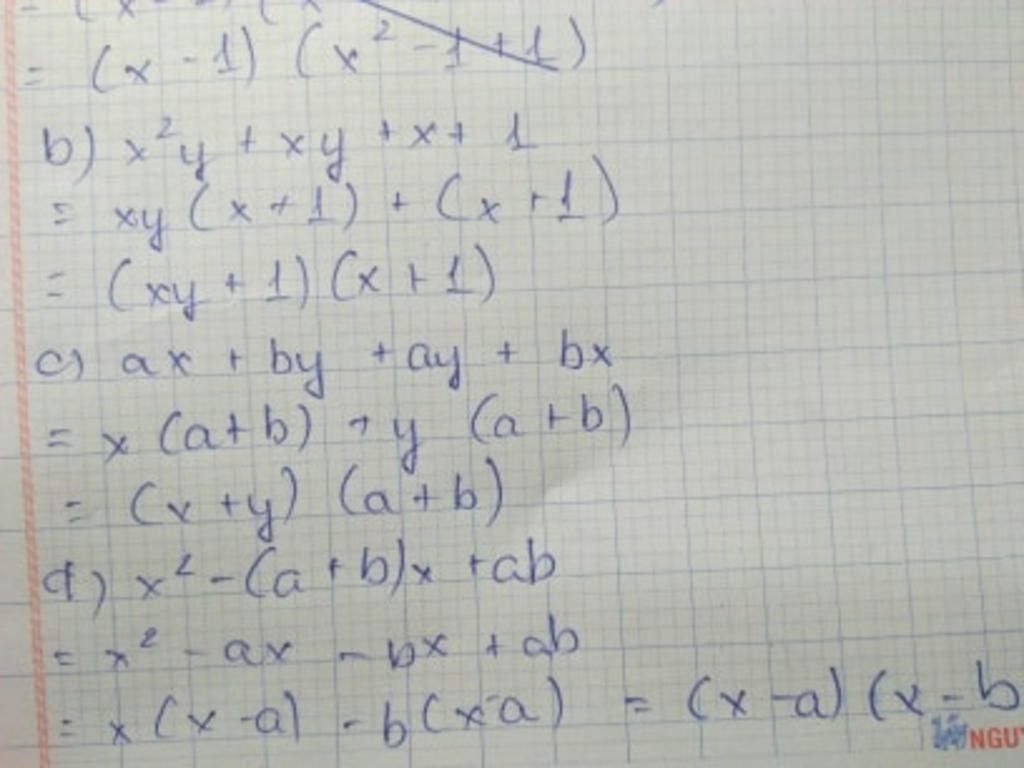 = (x - 1) (x² - 1 + 1)
b) x²y + xy + x + 1
= xy (x + 1) + (x + 1)
= (xy + 1) (x + 1)
c) ax + by + ay + bx
= x (a + b) + y (a + b)
= (x + y) (a + b)
d) x² - (a + b)x + ab
= x² - ax - bx + ab
= x (x - a) - b (x - a) = (x - a) (x - b
NGUY